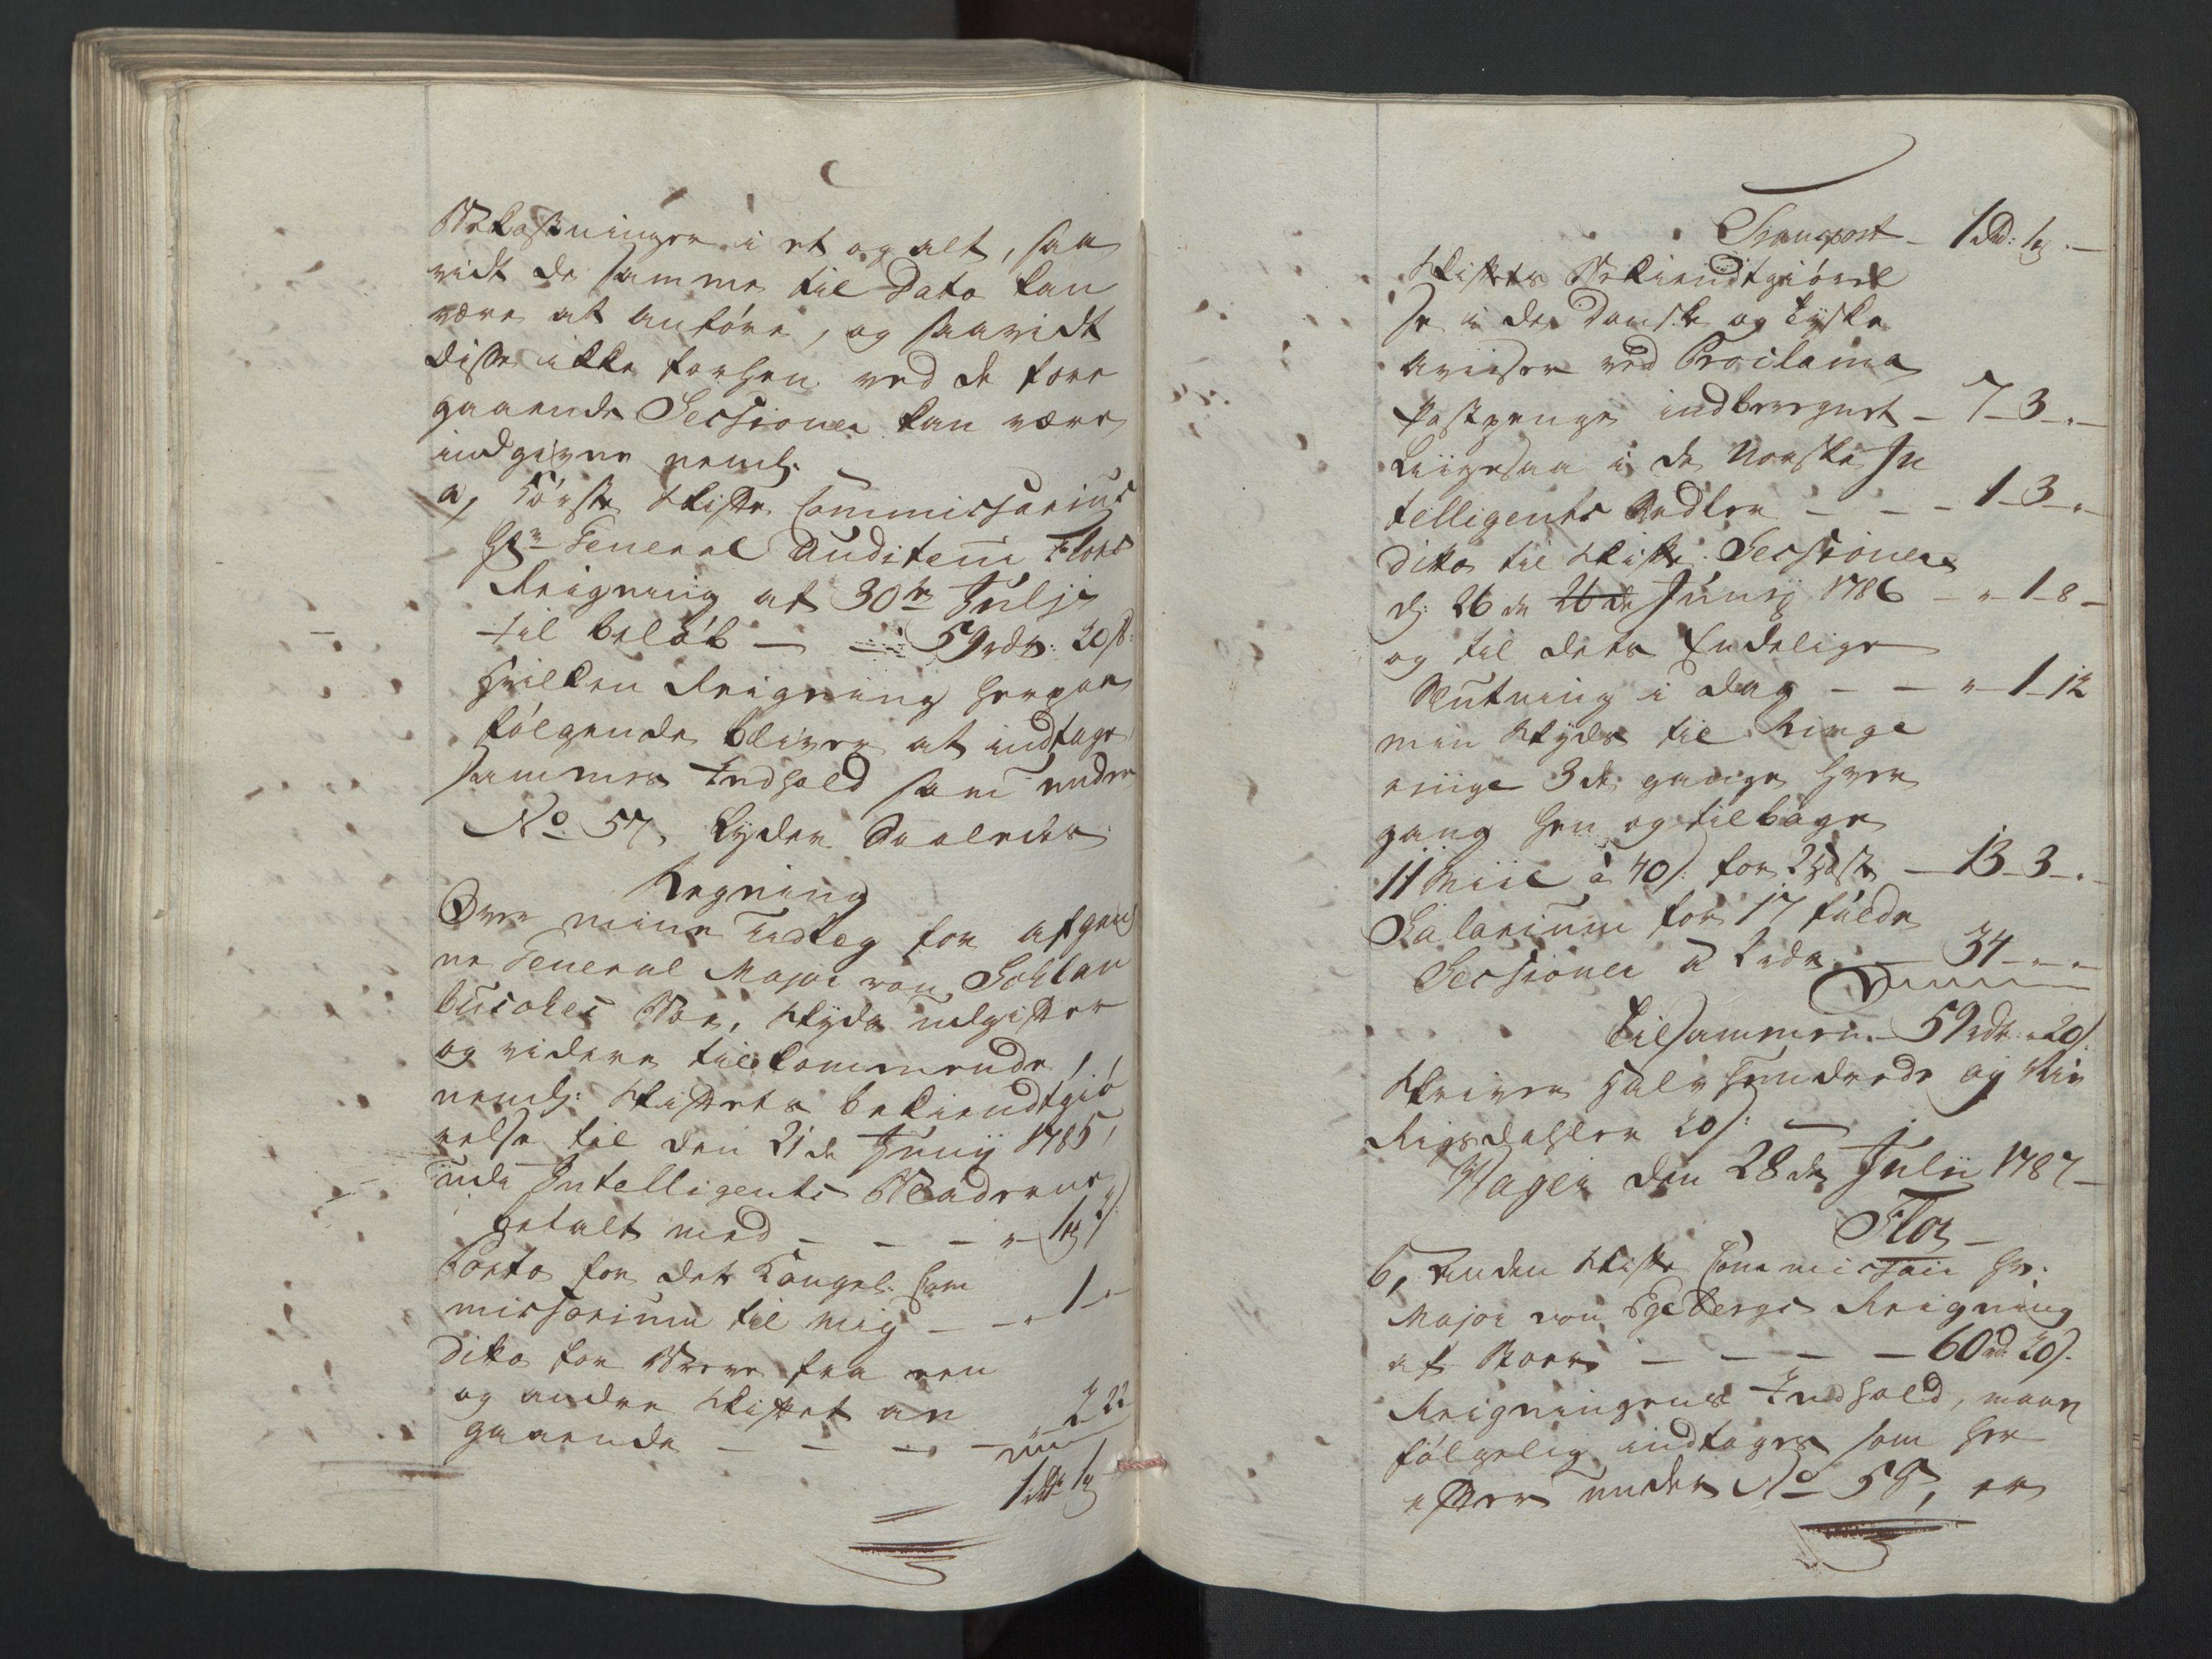 Bekostninger i et og alt, saa
vidt de samme til Dato kan
være at anføre, og saavidt
disse ikke forhen ved de fore
gaaende Sessioner kan være
indgivne neml:
a, Første Skifte Commissarius
Hr General Auditeur Flors
Reigning af 30te Julji
til beløb — — 59 rdr: 20 s:
hvilken Reigning herpaa
følgende bliver at indtage
sammes Indhold som under
No 57, Lyder Saaledes
Regning
Over mine Udlæg for afgan
ne General Major von
Boe, Skyds udgifter
og videre tilkommende,
neml: Skiftets bekiendtgiø
relse til den 21de Junij 1785,
udi Intelligents Bladerne
betalt med — — —
Porto for det Kongel: Com
missorium til mig — — 1 —
Dito for Breve fra een
og anden Skiftet an
gaaende — — — 2 22
1 rdr 1
Transport — 1 rd: 1
Skiftets Bekiendtgiørel
se i de Danske og Tydske
Aviser ved Proclama
Postpenge indberegnet — 7 — 3 —
Liigesaa i de Norske In
telligents Sedler — — — 1 — 3 —
Dito til Skifte Sessionen
d: 26de 26de Junij 1786 — " 1 — 8 —
og til dets Endelige
Slutning i Dag — — " 1 — 12
min Skyds til Ringe
riige 3de gange hver
gang hen og tilbage
11 Miil á 40 s: for 2 Hæste — 13 — 3 —
Salarium for 17 fulde
Sessioner á 2 rdr — 34 — — —
Tilsammen — 59 rdr " 20 s:
Skriver Halv hundrede og Nie
Rigsdahler 20 s: —
Hagen den 28de Julii 1787 —
Flor —
b, Anden Skifte Commissair Hr:
Major von Egebergs Reigning
af — — — — 60 rd: 20 s:
Reigningens Indhold, maae
følgelig indtages som her
efter under No 58, er